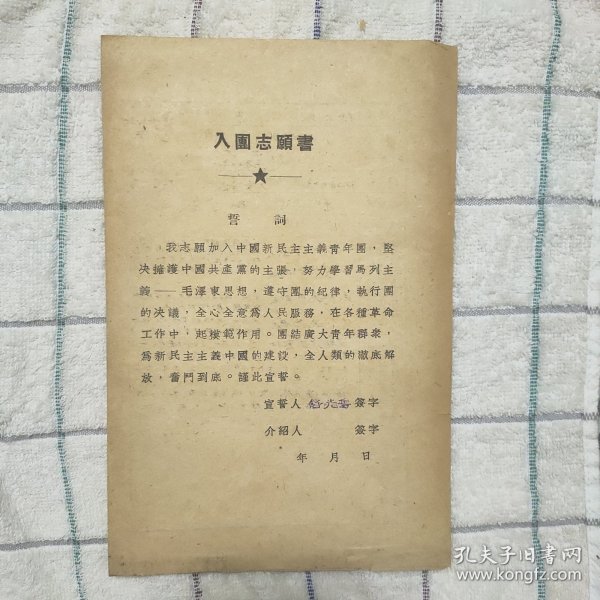 入團志願書
誓詞
我志願加入中國新民主主義青年團，堅
決擁護中國共產黨的主張，努力學習馬列主
義——毛澤東思想，遵守團的紀律，執行團
的决議，全心全意爲人民服務，在各種革命
工作中，起模範作用。團結廣大青年群衆，
爲新民主主義中國的建設，全人類的澈底解
放，奮鬥到底。謹此宣誓。
宣誓人 簽字
介紹人 簽字
年 月 日
孔夫子旧书网
www.kongfz.com